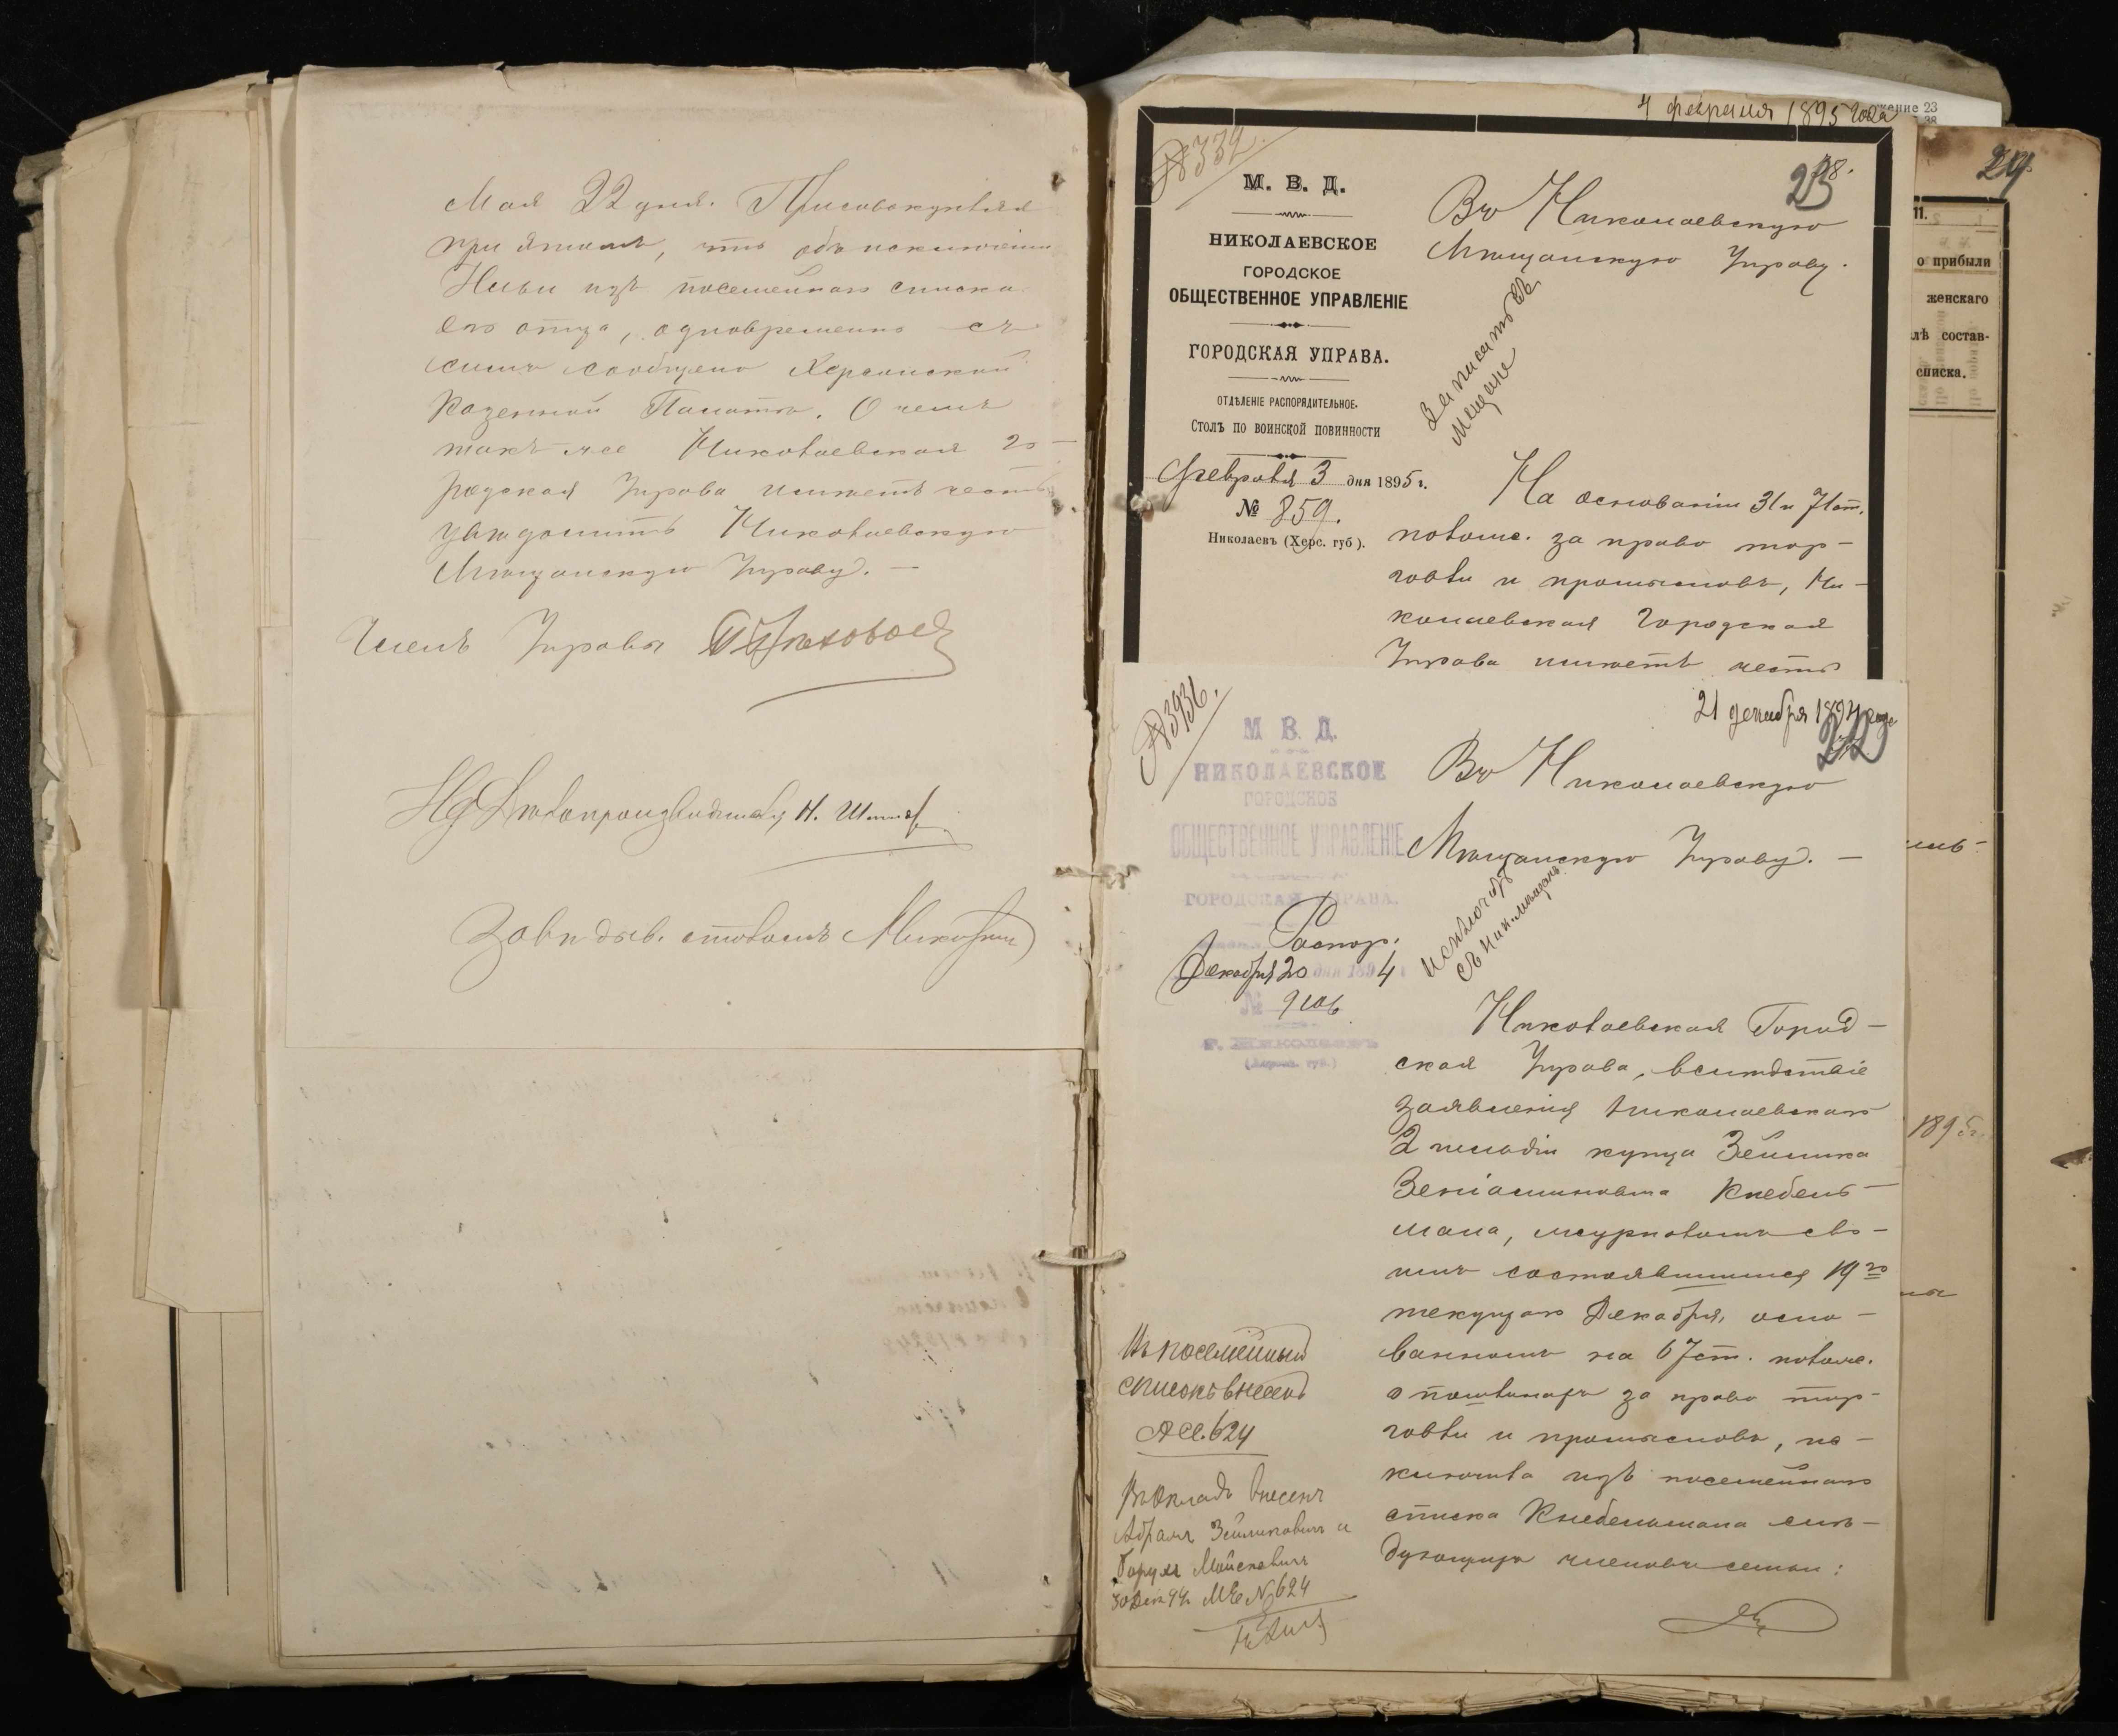 Мая 22 дня. Присовокупляя
при этомъ, что объ исключеніи
изъ посемейнаго списка
его отца, одновременно съ
симъ сообщено Херсонской
Казенной Палатѣ. О чемъ
такъ-же Николаевская Го-
родская Управа имѣетъ честь
увѣдомить Николаевскую
Мѣщанскую Управу. —
Членъ Управы
Дѣлопроизводитель Н.
Завѣдыв. столомъ
4 февраля 1895 года
№ 332.
23
М. В. Д.
НИКОЛАЕВСКОЕ
ГОРОДСКОЕ
ОБЩЕСТВЕННОЕ УПРАВЛЕНІЕ
ГОРОДСКАЯ УПРАВА.
ОТДѢЛЕНІЕ РАСПОРЯДИТЕЛЬНОЕ.
Столъ по воинской повинности
Февраля 3 дня 1895 г.
№ 859.
Николаевъ (Херс. губ).
Въ Николаевскую
Мѣщанскую Управу.
Записать въ
мещане
На основаніи 31 и 71 ст.
полож. за право тор-
говли и промысловъ, Ни-
колаевская Городская
Управа имѣетъ честь
№ 3936.
21 декабря 1894 года
22
М. В. Д.
НИКОЛАЕВСКОЕ
ГОРОДСКОЕ
ОБЩЕСТВЕННОЕ УПРАВЛЕНІЕ
ГОРОДСКАЯ УПРАВА.
Распор.
Декабря 20 дня 1894
№ 9106
г. Николаевъ
(Херсон. губ.)
Въ Николаевскую
Мѣщанскую Управу. —
съ Ник. мещанъ
Николаевская Город-
ская Управа, вслѣдствіе
заявленія Николаевскаго
2 гильдіи купца Зейлика
Веніаминовича Кнебель-
мана, журналомъ сво-
имъ состоявшимся 19го
текущаго Декабря, осно-
ваннымъ на 67 ст. полож.
о пошлинахъ за право тор-
говли и промысловъ, ис-
ключила изъ посемейнаго
списка Кнебельмана слѣ-
дующихъ членовъ семьи:
Въ посемейный
списокъ внесенъ
№ 624
Въ окладъ внесенъ
Абрамъ Зейликовичъ и
Борухъ Мойсеевичъ
№ 624
24
о прибыли
женскаго
лѣ состав-
списка.
1895 г.